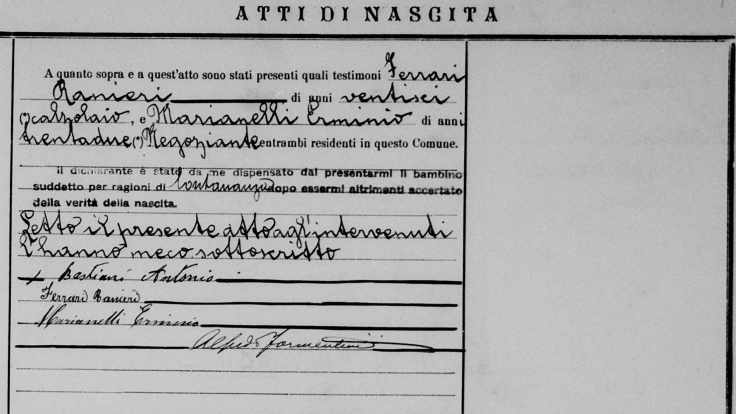 ATTI DI NASCITA
A quanto sopra e a quest'atto sono stati presenti quali testimoni Ferrari
Ranieri di anni ventisei
(2) calzolaio, e Marianelli Erminio di anni
trentadue (2) Negoziante entrambi residenti in questo Comune.
Il dichiarante è stato da me dispensato dal presentarmi il bambino
suddetto per ragioni di lontananza dopo essermi altrimenti accertato
della verità della nascita.
Letto il presente atto agl'intervenuti
l'hanno meco sottoscritto
Bastiani Antonio
Ferrari Ranieri
Marianelli Erminio
Alfredo Formentini